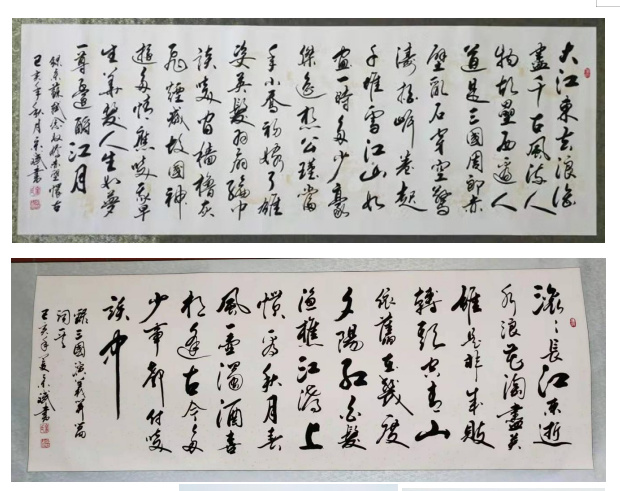 大江東去浪淘
盡千古風流人
物故壘西邊人
道是三國周郎赤
壁亂石穿空驚
濤拍岸卷起
千堆雪江山如
畫一時多少豪
傑遙想公瑾當
年小喬初嫁了雄
姿英發羽扇綸巾
談笑間檣櫓灰
飛煙滅故國神
遊多情應笑我早
生華髮人生如夢
一尊還酹江月
錄宋蘇軾念奴嬌赤壁懷古
己亥年秋月京斌書
滾〻長江東逝
水浪花淘盡英
雄是非成敗
轉頭空青山
依舊在幾度
夕陽紅白髮
漁樵江渚上
慣看秋月春
風一壺濁酒喜
相逢古今多
少事都付笑
談中
錄三國演義開篇
詞一首
己亥年夏京斌書